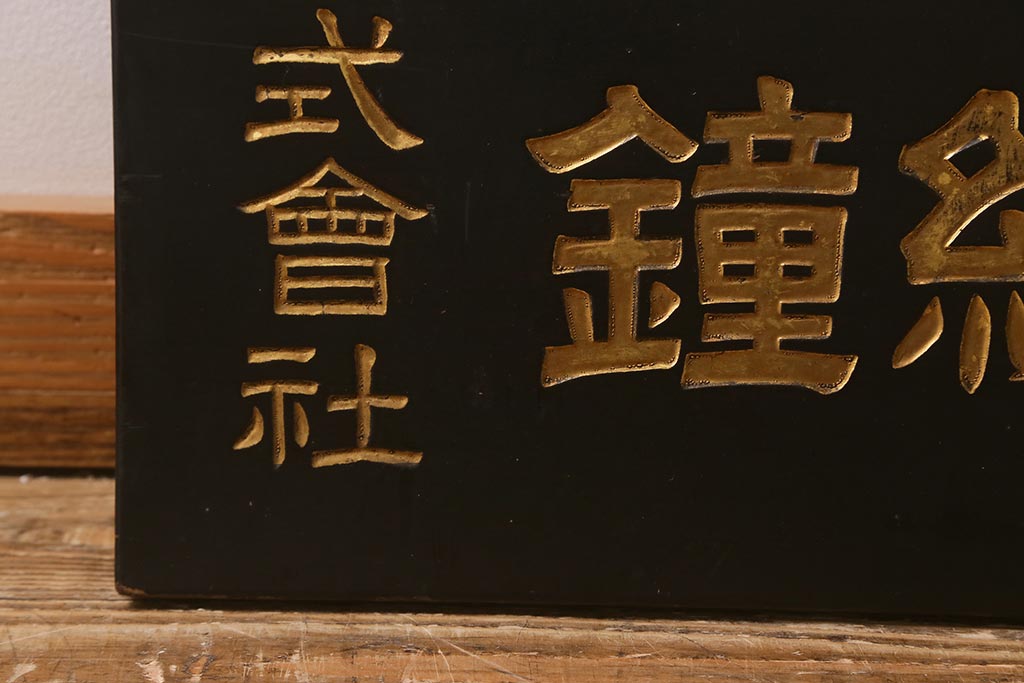 式會社
鐘